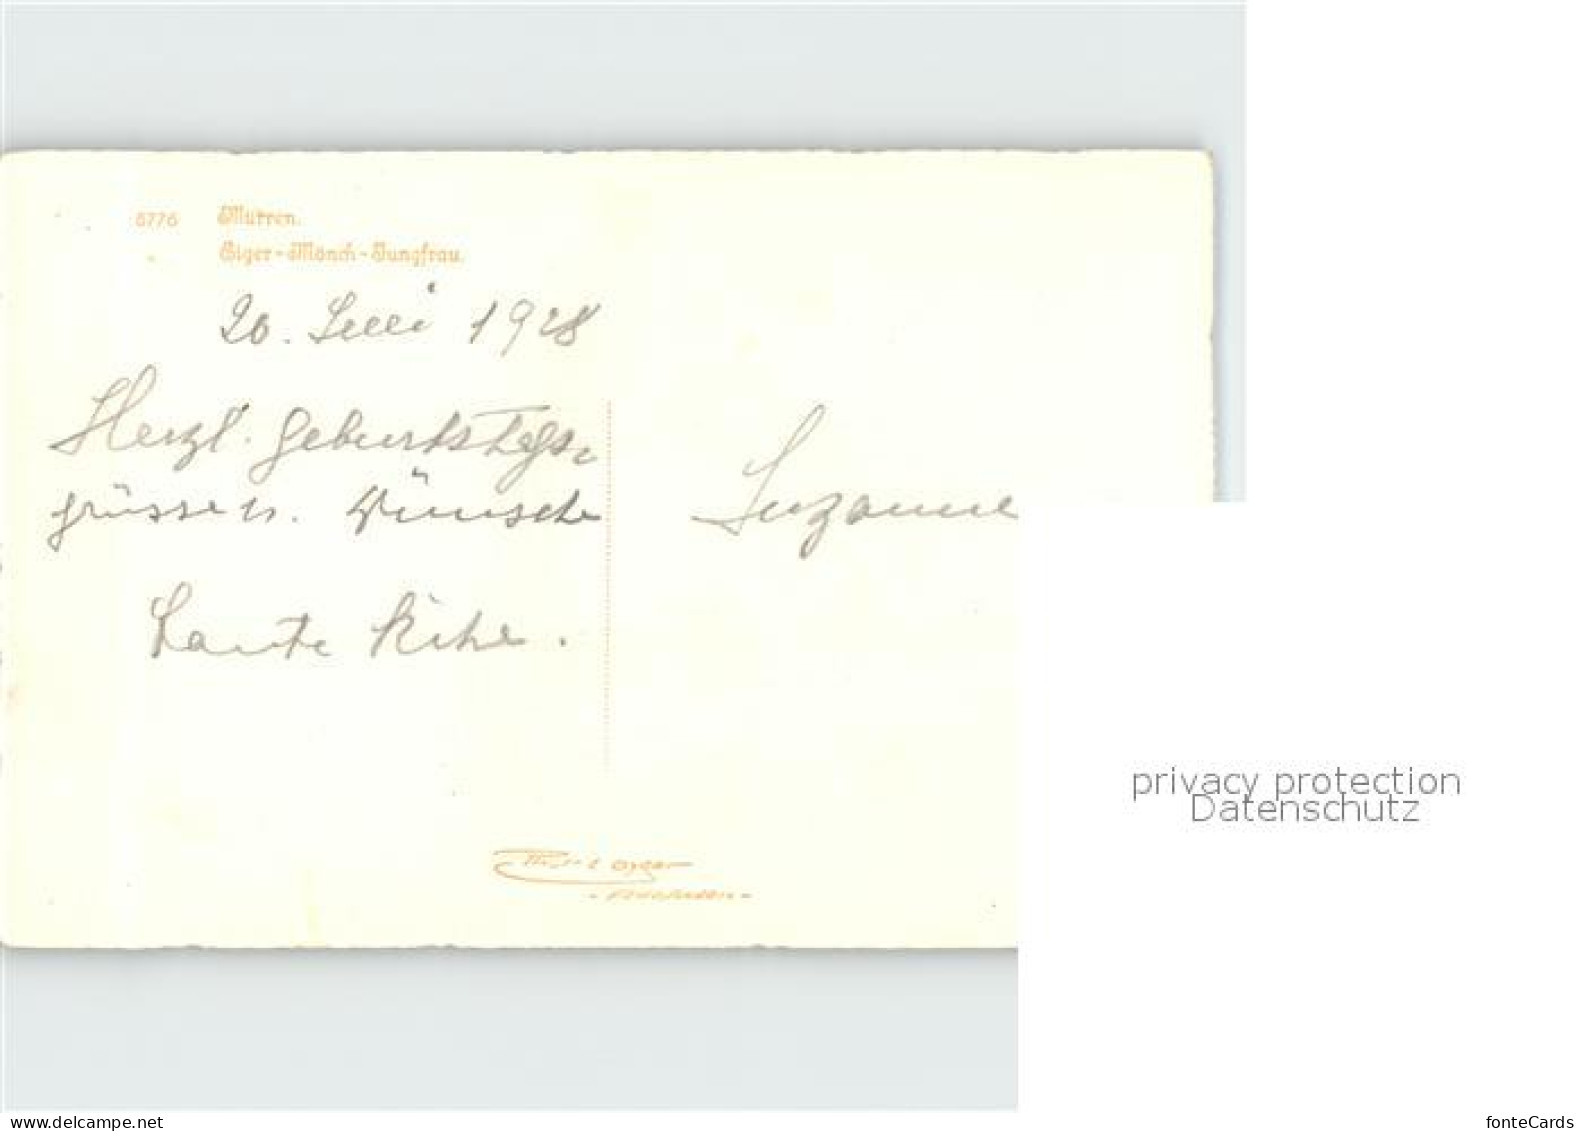 6776 Mürren.
Eiger-Mönch-Jungfrau.
20. Juli 1928
Herzl. Geburtstags-
grüsse u. Wünsche
Tante
Suzanne
privacy protection
Datenschutz
www.delcampe.net
fonteCards